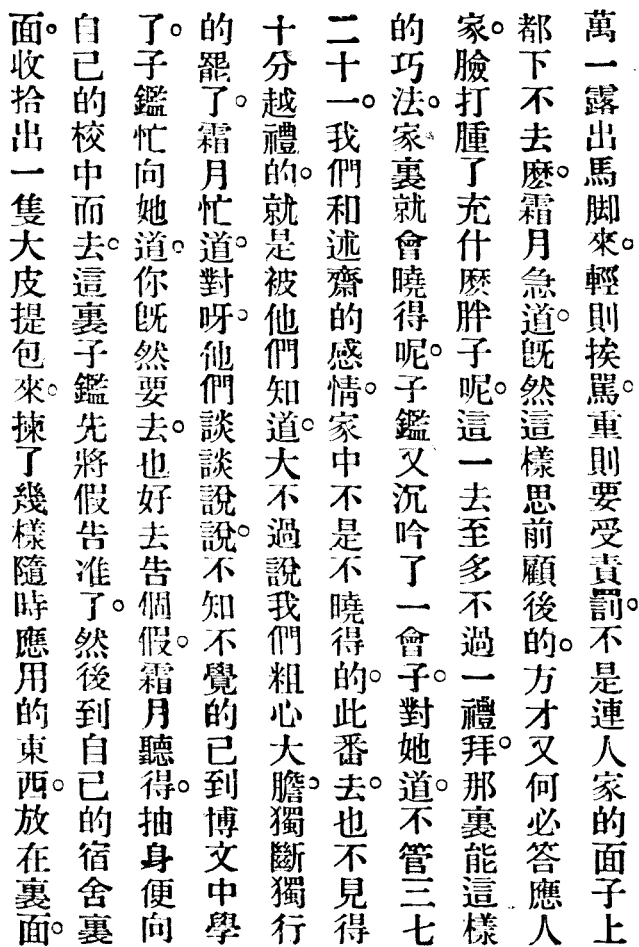 萬一露出馬脚來。輕則挨罵。重則要受責罰。不是連人家的面子上
都下不去麽。霜月急道。既然這樣思前顧後的。方才又何必答應人
家。臉打腫了充什麽胖子呢。這一去至多不過一禮拜。那裏能這樣
的巧法。家裏就會曉得呢。子鑑又沉吟了一會子。對她道。不管三七
二十一。我們和述齋的感情。家中不是不曉得的。此番去。也不見得
十分越禮的。就是被他們知道。大不過說我們粗心大膽。獨斷獨行
的罷了。霜月忙道。對呀。他們談談說說。不知不覺的已到博文中學
了。子鑑忙向她道。你既然要去。也好去告個假。霜月聽得。抽身便向
自己的校中而去。這裏子鑑先將假告准了。然後到自己的宿舍裏
面。收拾出一隻大皮提包來。揀了幾樣隨時應用的東西。放在裏面。